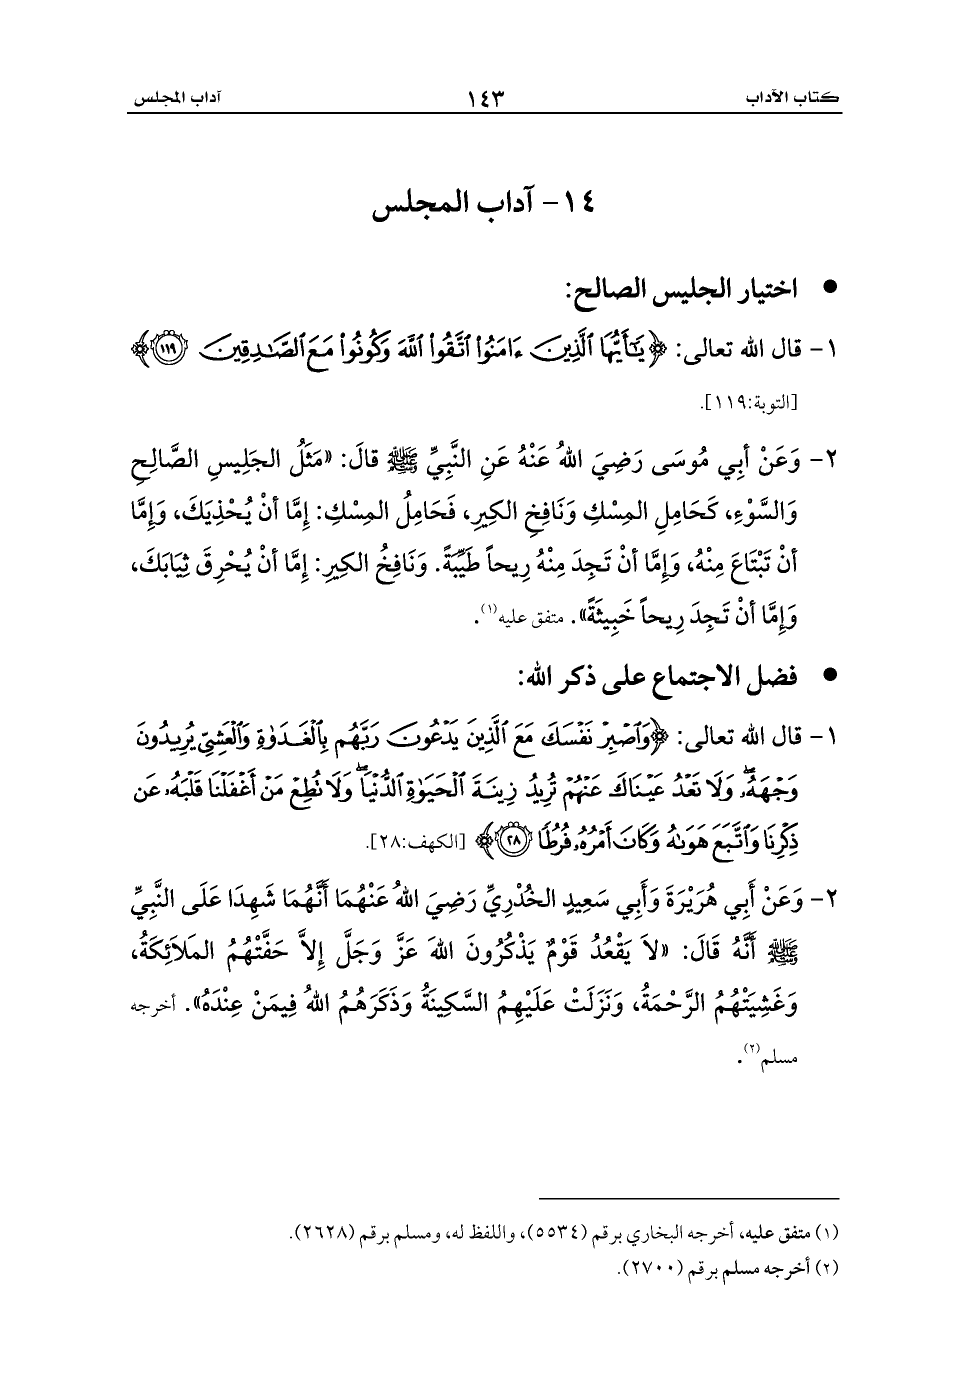 كتاب الآداب ١٤٣ آداب المجلس
١٤- آداب المجلس
• اختيار الجليس الصالح:
١- قال الله تعالى: ﴿يَٰٓأَيُّهَا ٱلَّذِينَ ءَامَنُوا۟ ٱتَّقُوا۟ ٱللَّهَ وَكُونُوا۟ مَعَ ٱلصَّٰدِقِينَ ١١٩﴾
[التوبة:١١٩].
٢- وَعَنْ أبِي مُوسَى رَضِيَ اللهُ عَنْهُ عَنِ النَّبِيِّ ﷺ قالَ: «مَثَلُ الجَلِيسِ الصَّالِحِ
وَالسَّوْءِ، كَحَامِلِ المِسْكِ وَنَافِخِ الكِيرِ، فَحَامِلُ المِسْكِ: إمَّا أنْ يُحْذِيَكَ، وَإمَّا
أنْ تَبْتَاعَ مِنْهُ، وَإمَّا أنْ تَجِدَ مِنْهُ رِيحاً طَيِّبَةً. وَنَافِخُ الكِيرِ: إمَّا أنْ يُحْرِقَ ثِيَابَكَ،
وَإمَّا أنْ تَجِدَ رِيحاً خَبِيثَةً». متفق عليه(١).
• فضل الاجتماع على ذكر الله:
١- قال الله تعالى: ﴿وَٱصْبِرْ نَفْسَكَ مَعَ ٱلَّذِينَ يَدْعُونَ رَبَّهُم بِٱلْغَدَوٰةِ وَٱلْعَشِىِّ يُرِيدُونَ
وَجْهَهُۥ ۖ وَلَا تَعْدُ عَيْنَاكَ عَنْهُمْ تُرِيدُ زِينَةَ ٱلْحَيَوٰةِ ٱلدُّنْيَا ۖ وَلَا تُطِعْ مَنْ أَغْفَلْنَا قَلْبَهُۥ عَن
ذِكْرِنَا وَٱتَّبَعَ هَوَىٰهُ وَكَانَ أَمْرُهُۥ فُرُطًا ٢٨﴾ [الكهف:٢٨].
٢- وَعَنْ أَبِي هُرَيْرَةَ وَأَبِي سَعِيدٍ الخُدْرِيِّ رَضِيَ اللهُ عَنْهُمَا أَنَّهُمَا شَهِدَا عَلَى النَّبِيِّ
ﷺ أَنَّهُ قَالَ: «لاَ يَقْعُدُ قَوْمٌ يَذْكُرُونَ اللهَ عَزَّ وَجَلَّ إلاَّ حَفَّتْهُمُ المَلاَئِكَةُ،
وَغَشِيَتْهُمُ الرَّحْمَةُ، وَنَزَلَتْ عَلَيْهِمُ السَّكِينَةُ وَذَكَرَهُمُ اللهُ فِيمَنْ عِنْدَهُ». أخرجه
مسلم(٢).
(١) متفق عليه، أخرجه البخاري برقم (٥٥٣٤)، واللفظ له، ومسلم برقم (٢٦٢٨).
(٢) أخرجه مسلم برقم (٢٧٠٠).